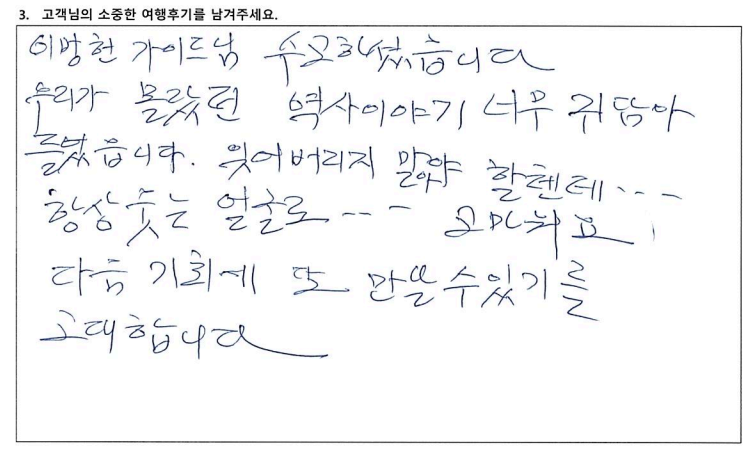 3. 고객님의 소중한 여행후기를 남겨주세요.
이방헌 가이드님 수고하셨습니다
우리가 몰랐던 역사이야기 너무 귀담아
들었읍니다. 잊어버리지 말아야 할텐데...
항상 웃는 얼굴로... 고마워요
다음 기회에 또 만날수있기를
고대합니다